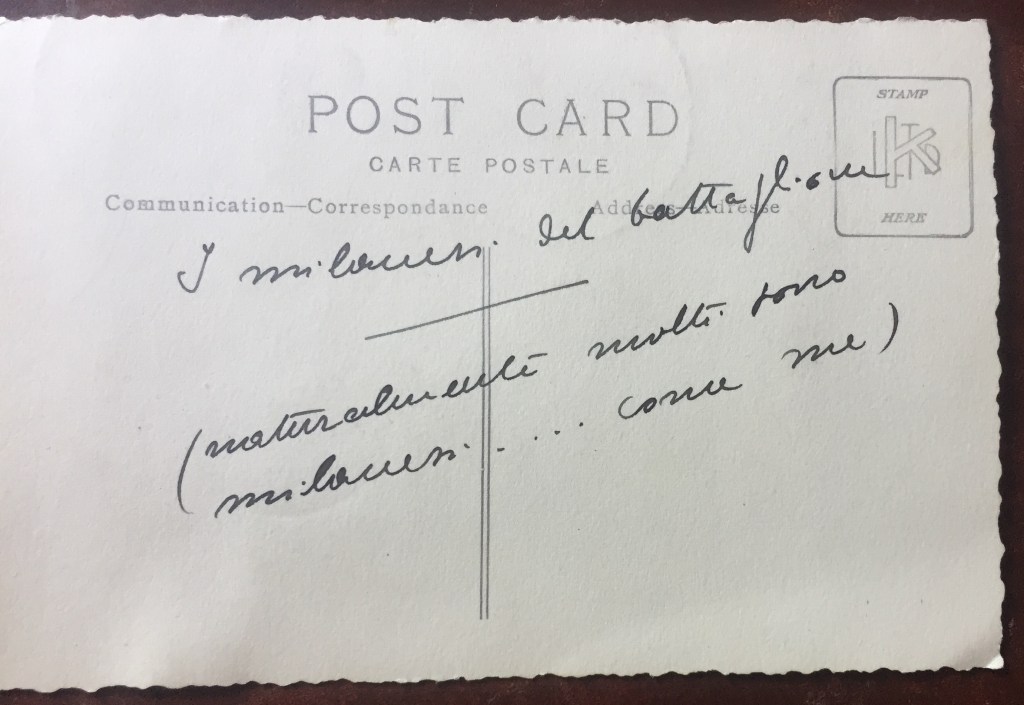 POST CARD
CARTE POSTALE
STAMP
HERE
Communication—Correspondance
Address—Adresse
I milanesi del battaglione
(naturalmente molti sono
milanesi.... come me)